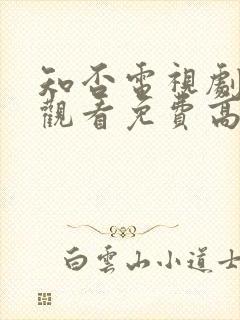 知否電視劇
觀看免費高
白雲山小道士